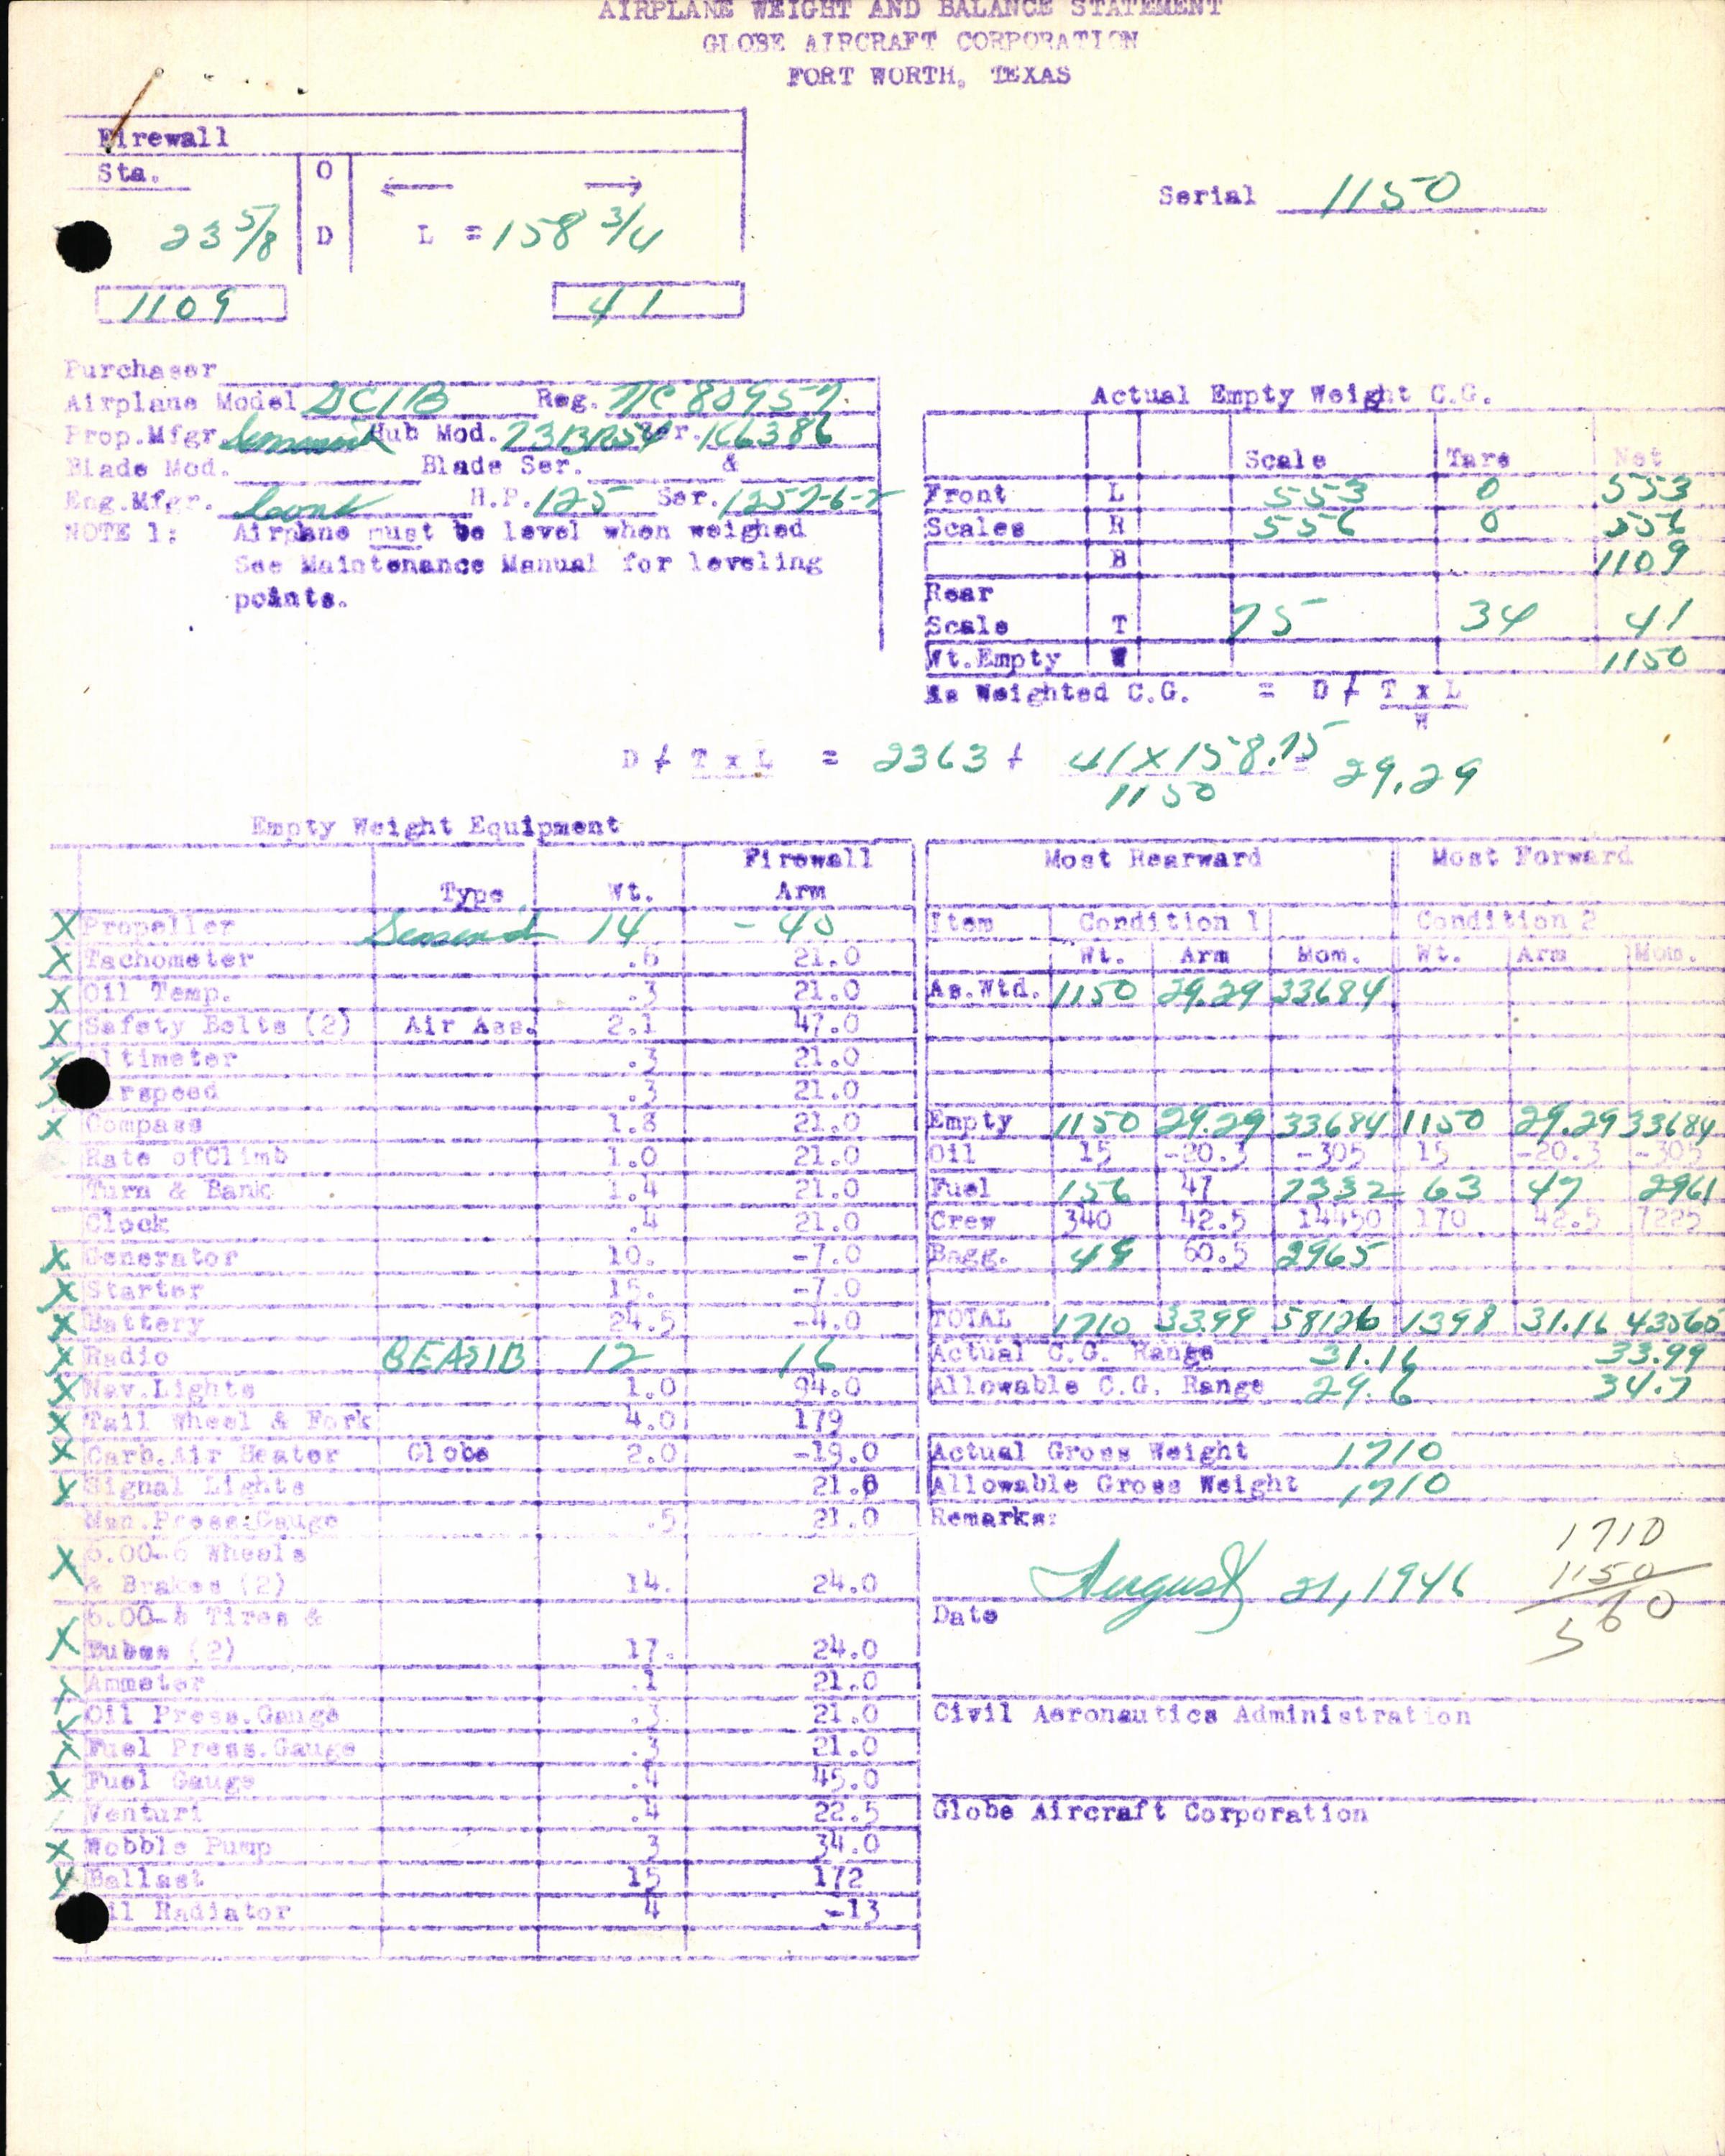 AIRPLANE WEIGHT AND BALANCE STATEMENT
GLOBE AIRCRAFT CORPORATION
FORT WORTH, TEXAS
Firewall
Sta. O
23 5/8 D L = 158 3/4
1109 41
Serial 1150
Purchaser
Airplane Model GC1B Reg. NC 80957
Prop.Mfgr. Hub Mod. Ser. K6386
Blade Mod. Blade Ser. &
Eng.Mfgr. H.P. 125 Ser.
NOTE 1: Airplane must be level when weighed
See Maintenance Manual for leveling
points.
Actual Empty Weight C.G.
Scale Tare Net
Front L 553 0 553
Scales R 556 0 556
B 1109
Rear
Scale T 75 34 41
Wt.Empty W 1150
As Weighted C.G. = D ⁄ T x L
W
D ⁄ T x L = 2363 + 41 X 158.75 = 29.29
1150
Empty Weight Equipment
Type Wt. Firewall Arm
X Propeller 14 -40
X Tachometer .6 21.0
X Oil Temp. .3 21.0
X Safety Belts (2) Air Ass. 2.1 47.0
X ltimeter .3 21.0
X rspeed .3 21.0
X Compass 1.8 21.0
Rate ofClimb 1.0 21.0
Turn & Bank 1.4 21.0
Clock .4 21.0
X Generator 10. -7.0
X Starter 15. -7.0
X Battery 24.5 -4.0
X Radio 12 16
X Nav.Lights 1.0 94.0
X Tail Wheel & Fork 4.0 179
X Carb.Air Heater Globe 2.0 -19.0
X Signal Lights 21.0
Man.Press.Gauge .5 21.0
X 6.00-6 Wheels
& Brakes (2) 14. 24.0
6.00-6 Tires &
X Tubes (2) 17. 24.0
X Ammeter .1 21.0
X Oil Press.Gauge .3 21.0
X Fuel Press.Gauge .3 21.0
X Fuel Gauge .4 45.0
Venturi .4 22.5
X Wobble Pump 3 34.0
X Ballast 15 172
il Radiator 4 -13
Most Rearward Most Forward
Item Condition 1 Condition 2
Wt. Arm Mom. Wt. Arm Mom.
As.Wtd. 1150 29.29 33684
Empty 1150 29.29 33684 1150 29.29 33684
Oil 15 -20.3 -305 15 -20.3 -305
Fuel 156 47 7332 63 47 2961
Crew 340 42.5 14450 170 42.5 7225
Bagg. 49 60.5 2965
TOTAL 1710 33.99 58126 1398 31.16 43565
Actual C.G. Range 31.16 33.99
Allowable C.G. Range 29.6 34.7
Actual Gross Weight 1710
Allowable Gross Weight 1710
Remarks:
1710
1150
560
August 21, 1946
Date
Civil Aeronautics Administration
Globe Aircraft Corporation